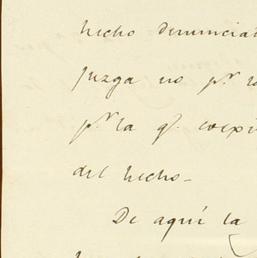 hecho denuncia
juzga no pr. lo
pr. la q. coexi
del hecho_
De aquí la